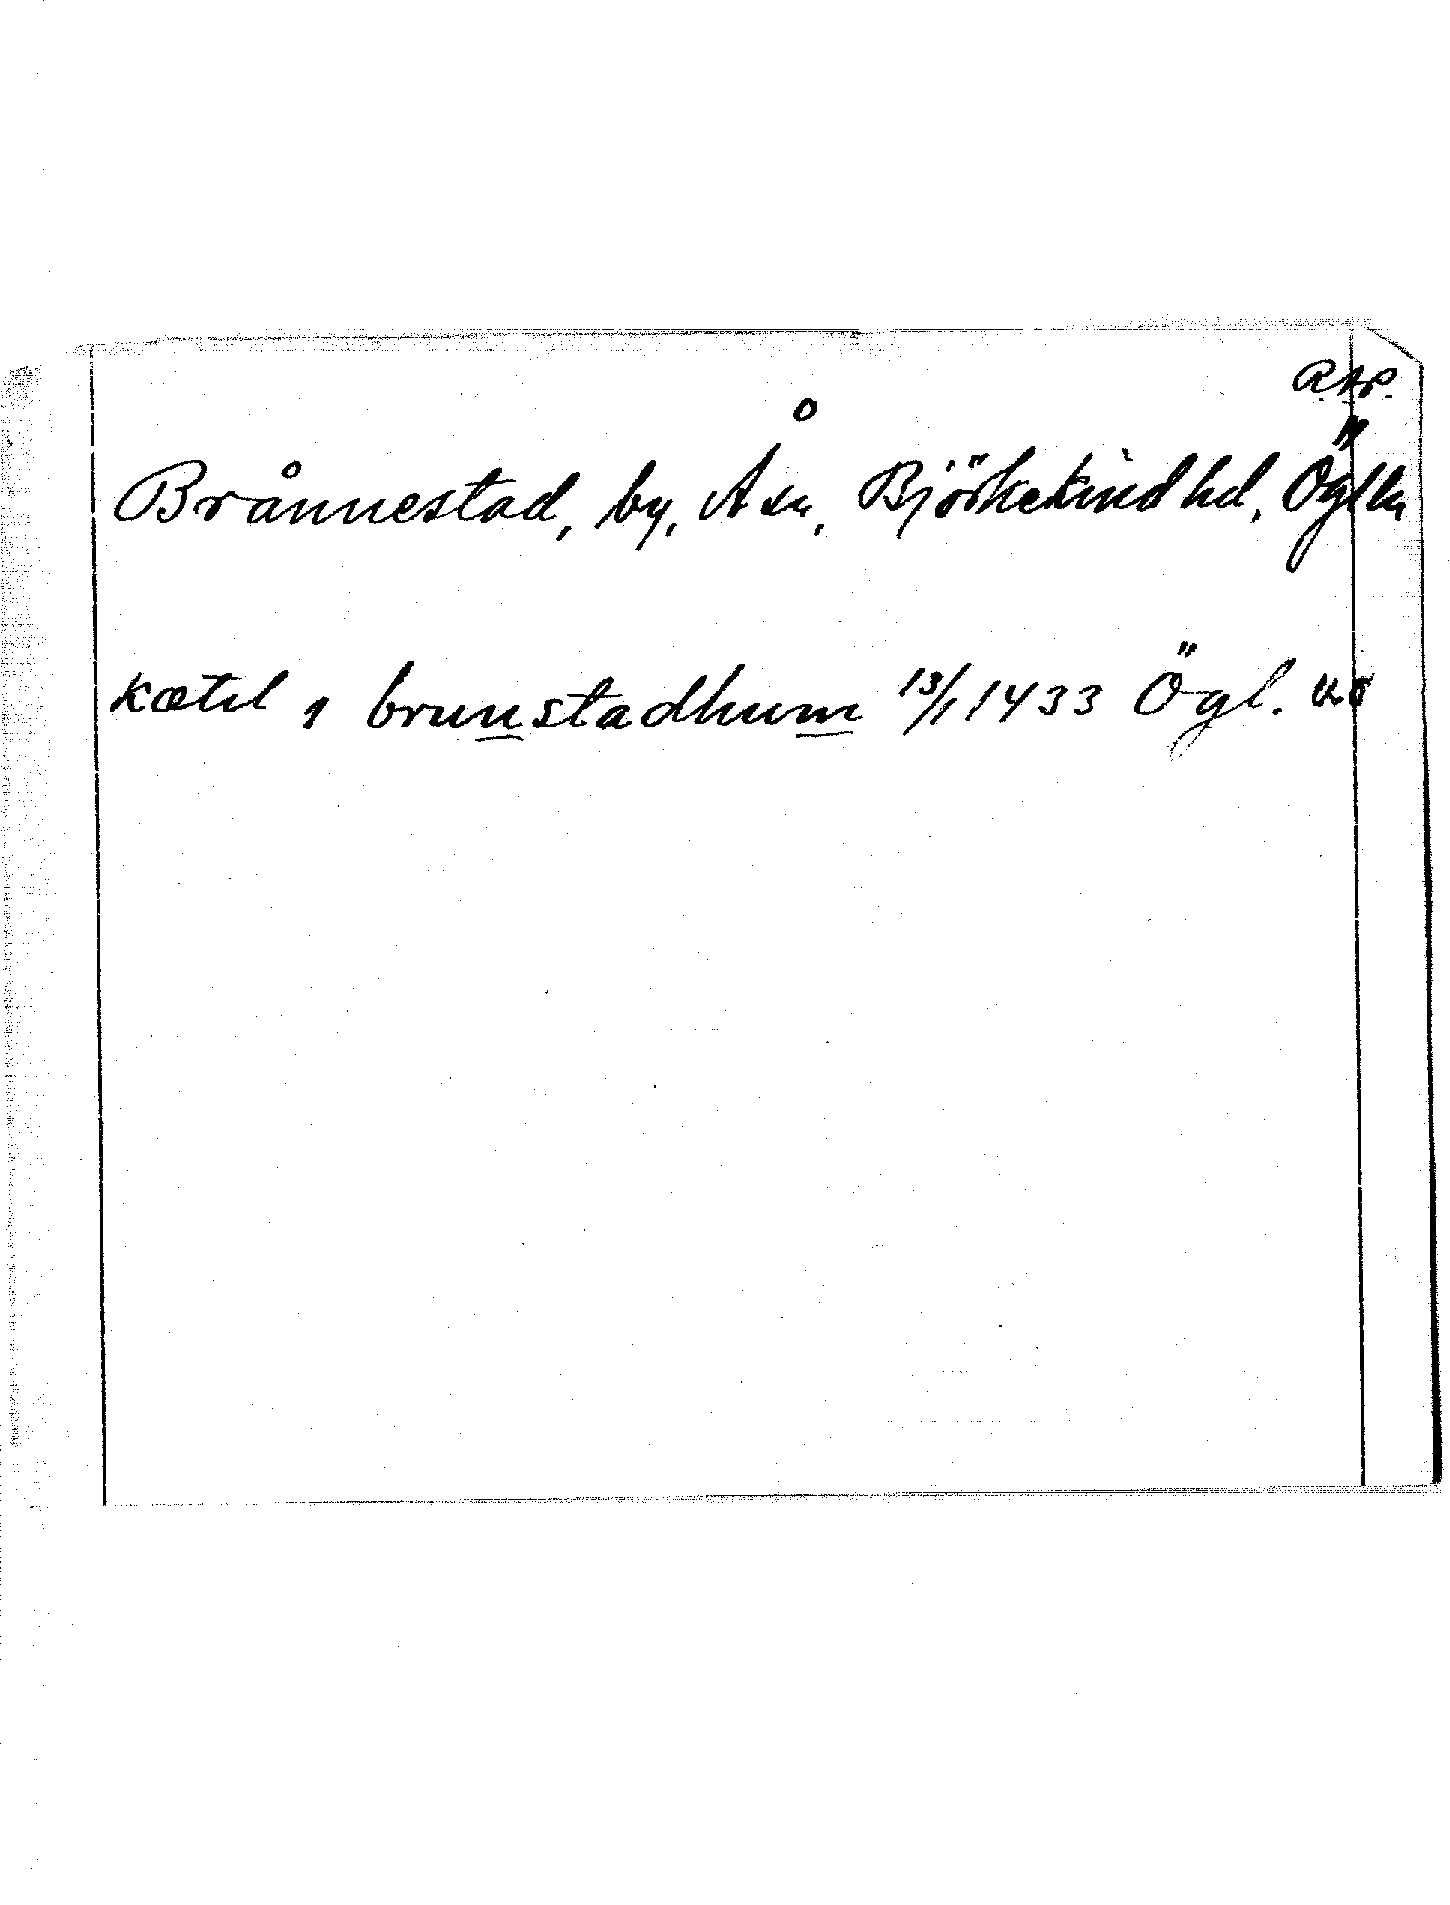 RAp.
Brånnestad, by, Å sn, Björkekind hd, Ögl län
kætil ı brunstadhum 13/1 1433 Ögl. or